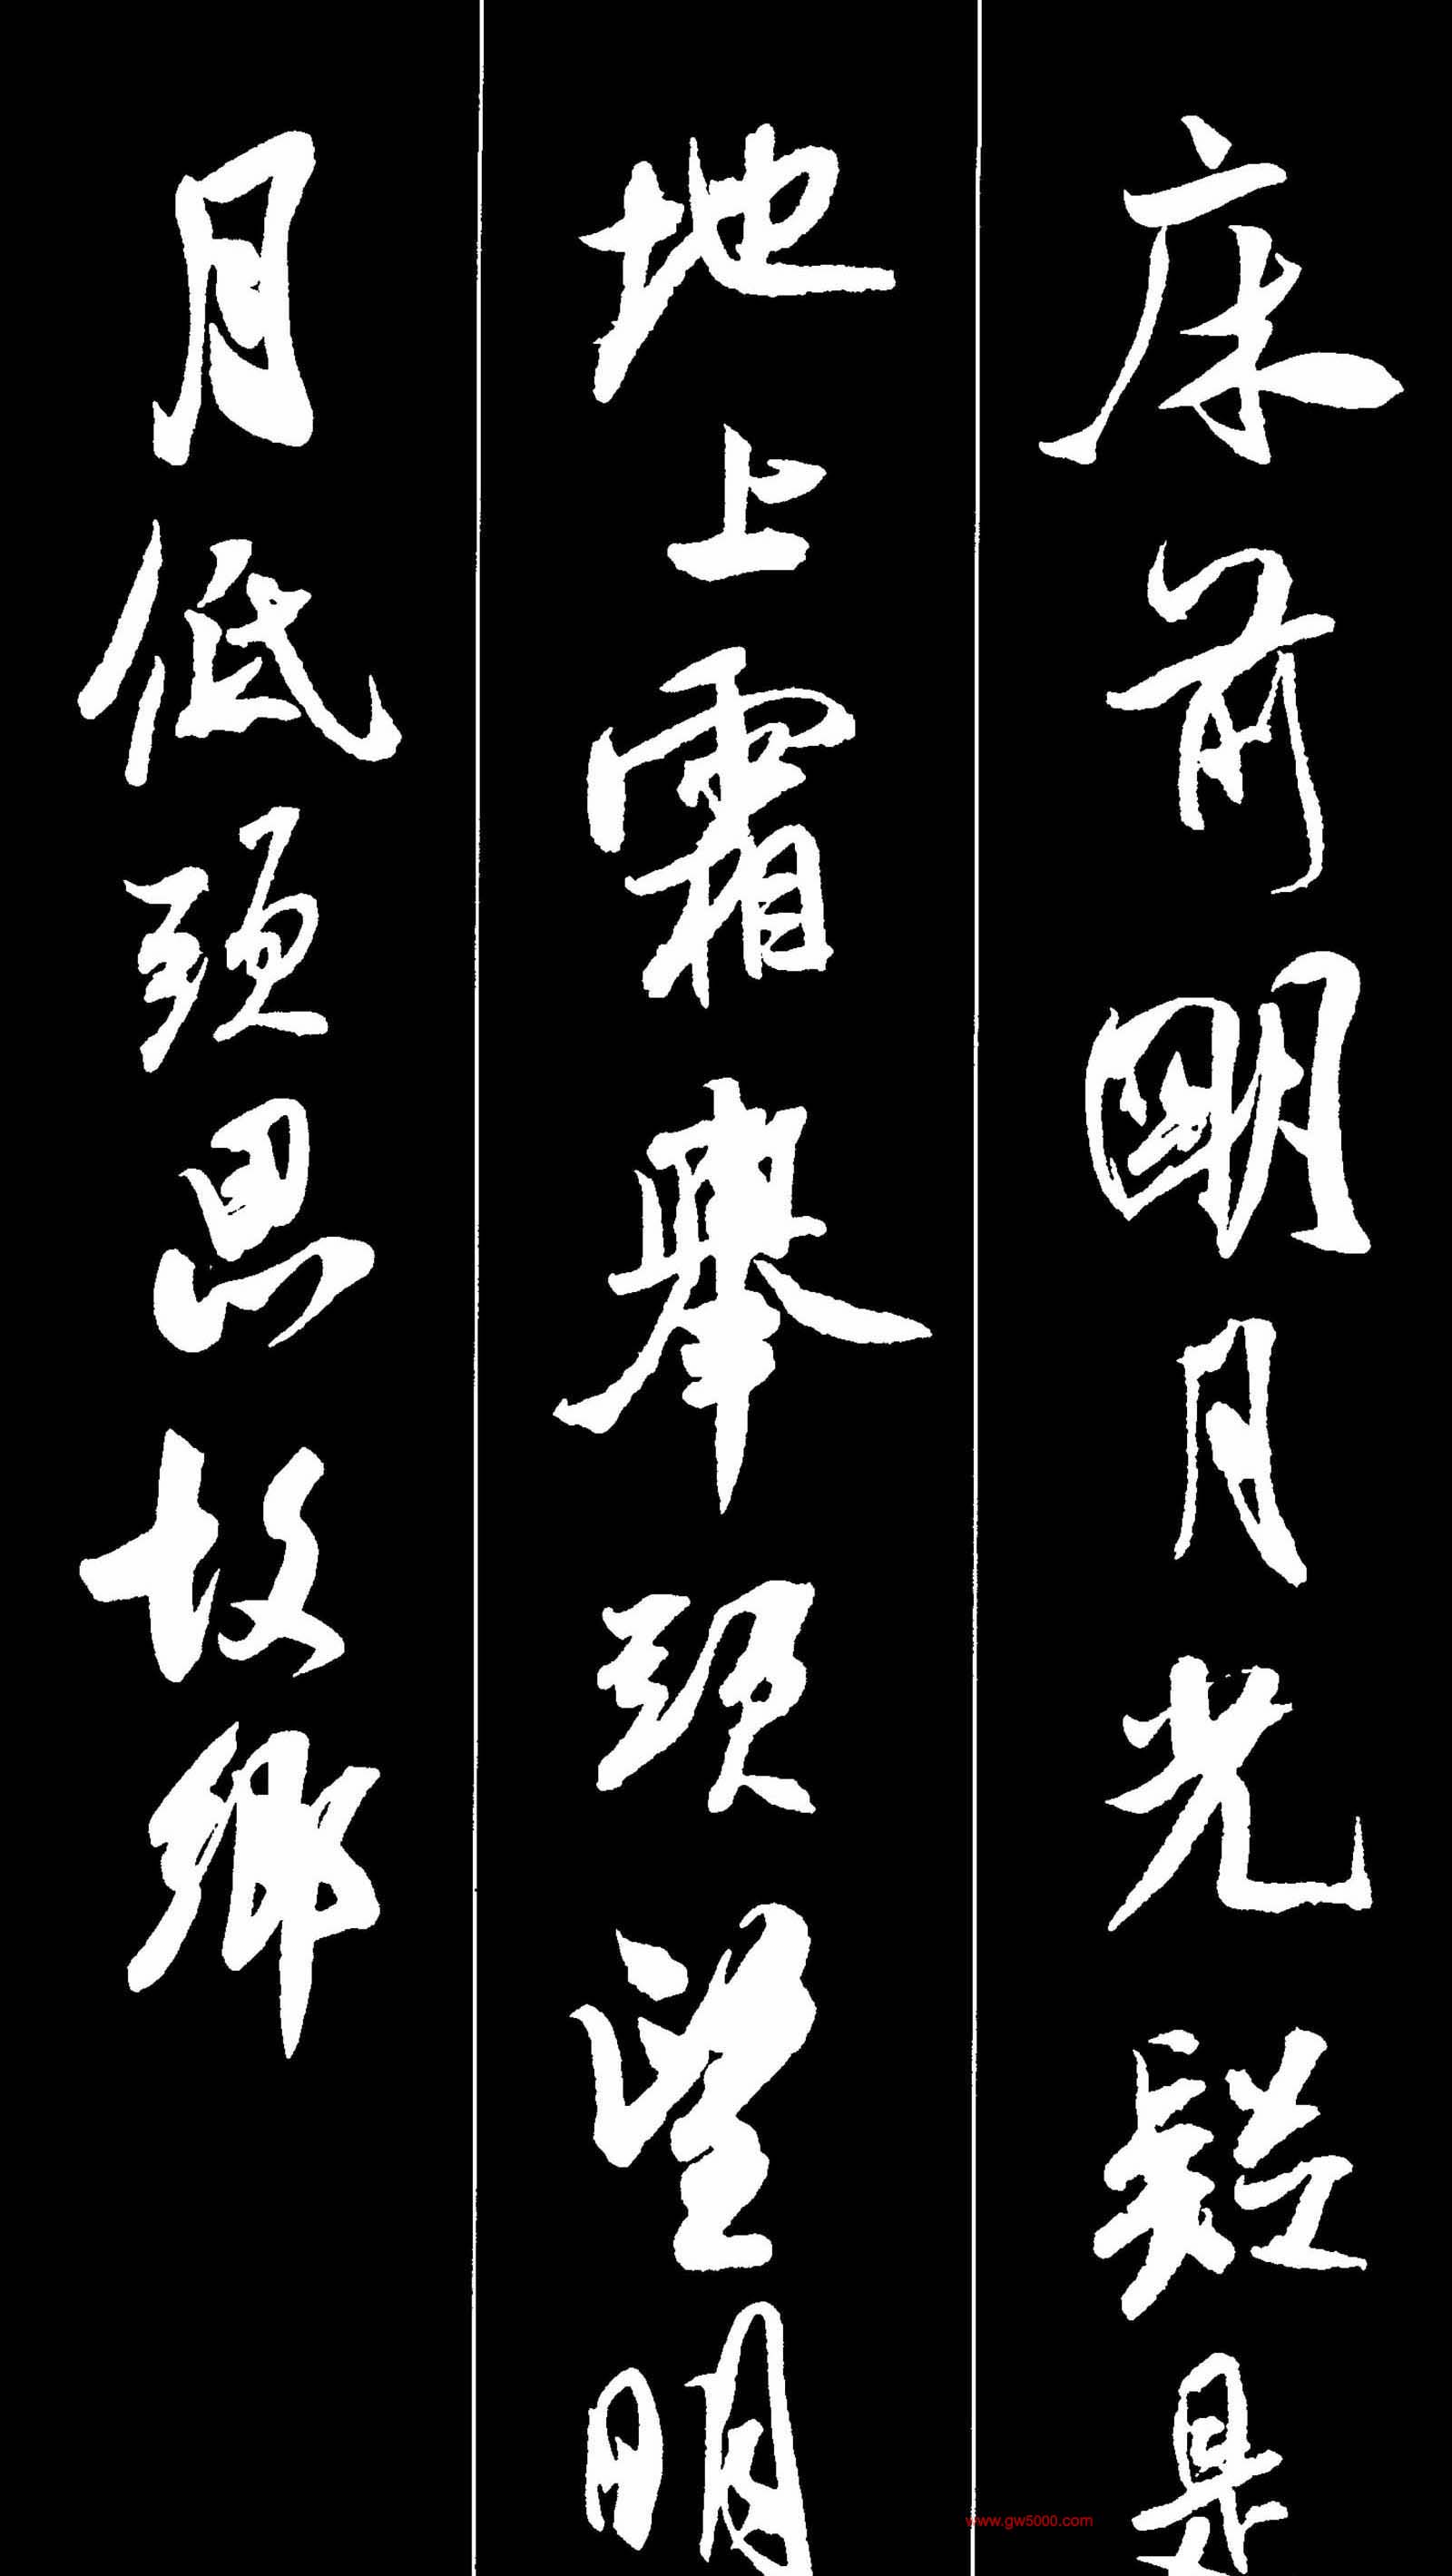 床前明月光疑是
地上霜舉頭望明
月低頭思故鄉
www.gw5000.com